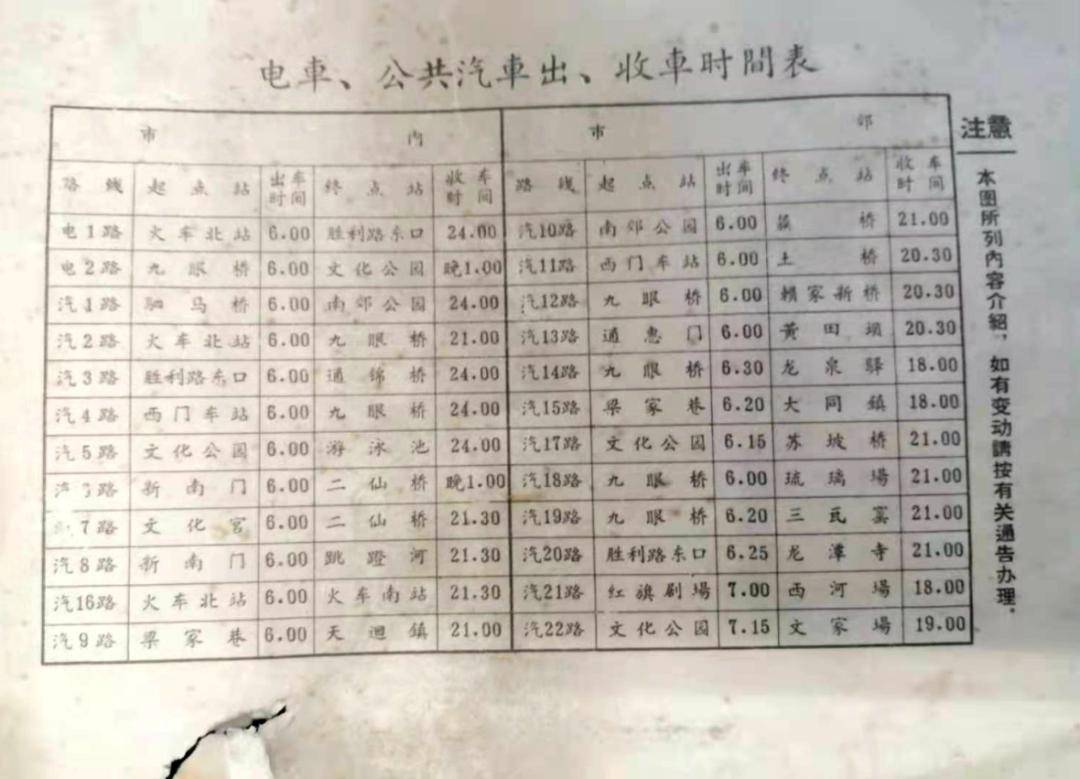 电車、公共汽車出、收車时間表
市 内 市 郊
路线 起点站 出车时间 终点站 收车时间 路线 起点站 出车时间 终点站 收车时间
电1路 火车北站 6.00 胜利路东口 24.00 汽10路 南郊公园 6.00 桥 21.00
电2路 九眼桥 6.00 文化公园 晚1.00 汽11路 西门车站 6.00 土桥 20.30
汽1路 驷马桥 6.00 南郊公园 24.00 汽12路 九眼桥 6.00 賴家新桥 20.30
汽2路 火车北站 6.00 九眼桥 21.00 汽13路 通惠门 6.00 黄田坝 20.30
汽3路 胜利路东口 6.00 通锦桥 24.00 汽14路 九眼桥 6.30 龙泉驿 18.00
汽4路 西门车站 6.00 九眼桥 24.00 汽15路 梁家巷 6.20 大同鎮 18.00
汽5路 文化公园 6.00 游泳池 24.00 汽17路 文化公园 6.15 苏坡桥 21.00
路 新南门 6.00 二仙桥 晚1.00 汽18路 九眼桥 6.00 琉璃場 21.00
7路 文化宫 6.00 二仙桥 21.30 汽19路 九眼桥 6.20 三瓦窰 21.00
汽8路 新南门 6.00 跳蹬河 21.30 汽20路 胜利路东口 6.25 龙潭寺 21.00
汽16路 火车北站 6.00 火车南站 21.30 汽21路 红旗剧場 7.00 西河場 18.00
汽9路 梁家巷 6.00 天迴鎮 21.00 汽22路 文化公园 7.15 文家場 19.00
注意
本图所列内容介紹，如有变动請按有关通告办理．